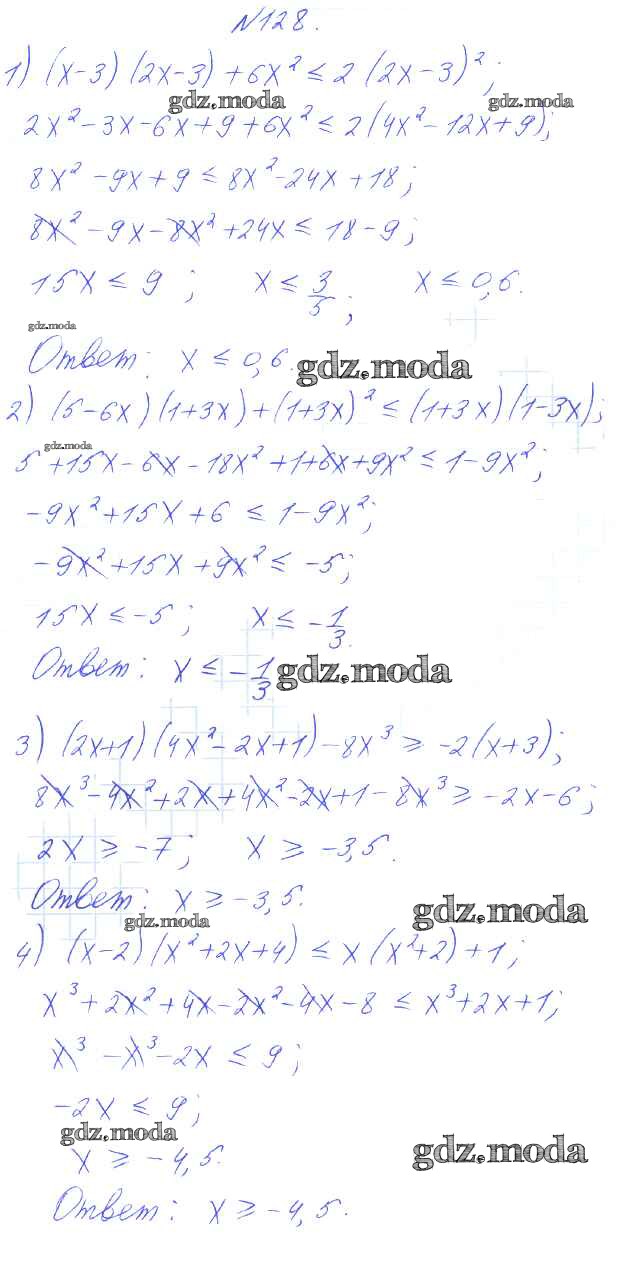 №128.
1) (x-3)(2x-3)+6x² ≤ 2(2x-3)²;
gdz.moda gdz.moda
2x²-3x-6x+9+6x² ≤ 2(4x²-12x+9);
8x²-9x+9 ≤ 8x²-24x+18;
8x²-9x-8x²+24x ≤ 18-9;
15x ≤ 9; x ≤ 3/5; x ≤ 0,6.
gdz.moda
Ответ: x ≤ 0,6.
gdz.moda
2) (5-6x)(1+3x)+(1+3x)² ≤ (1+3x)(1-3x);
gdz.moda
5+15x-6x-18x²+1+6x+9x² ≤ 1-9x²;
-9x²+15x+6 ≤ 1-9x²;
-9x²+15x+9x² ≤ -5;
15x ≤ -5; x ≤ -1/3.
Ответ: x ≤ -1/3
gdz.moda
3) (2x+1)(4x²-2x+1)-8x³ ≥ -2(x+3);
8x³-4x²+2x+4x²-2x+1-8x³ ≥ -2x-6;
2x ≥ -7; x ≥ -3,5.
Ответ: x ≥ -3,5.
gdz.moda gdz.moda
4) (x-2)(x²+2x+4) ≤ x(x²+2)+1;
x³+2x²+4x-2x²-4x-8 ≤ x³+2x+1;
x³-x³-2x ≤ 9;
-2x ≤ 9;
gdz.moda
x ≥ -4,5.
gdz.moda
Ответ: x ≥ -4,5.